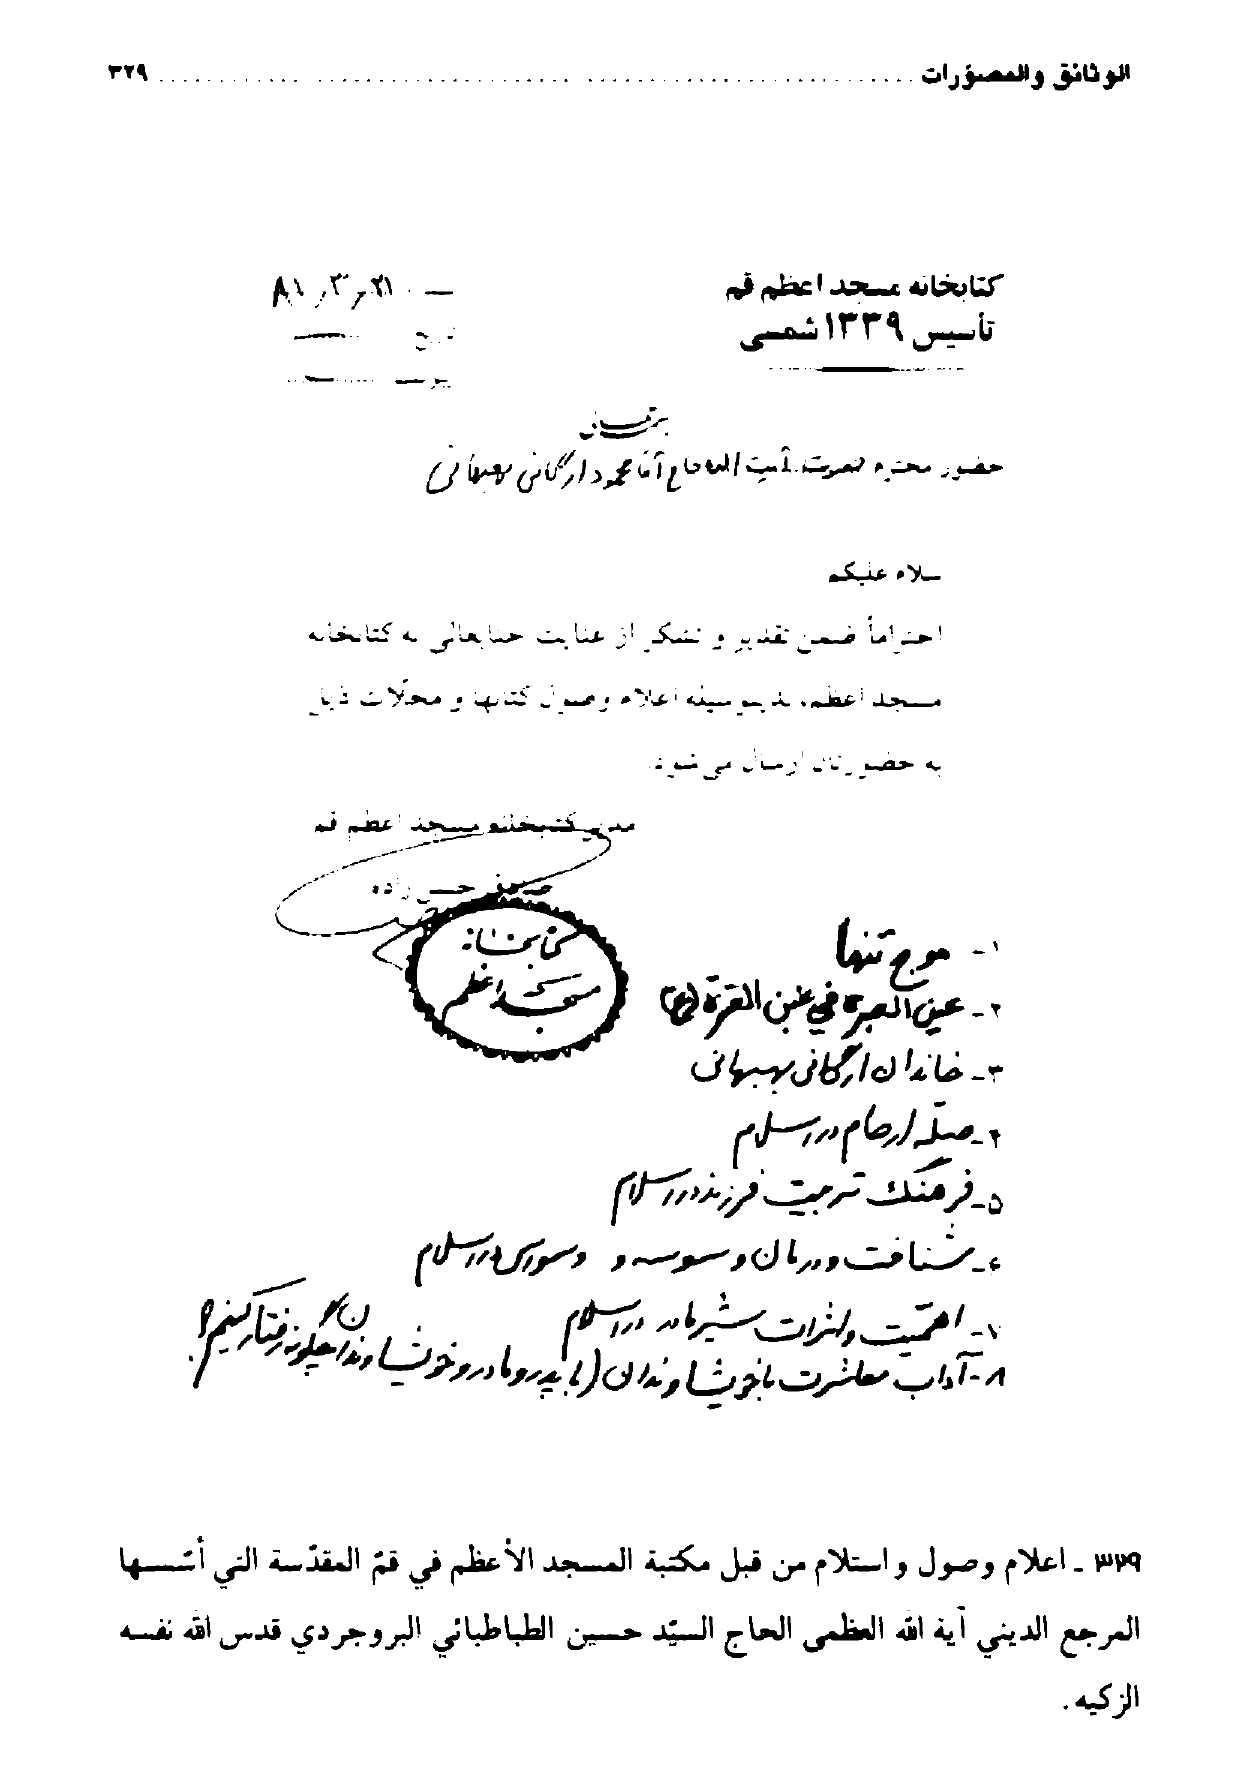 الوثائق والمصوّرات ٣٢٩
كتابخانه مسجد اعظم قم
تأسيس ١٣٣٩ شمسى
٨١٫٣٫٢١
حضور محترم حضرت آيت الله حاج آقا محمود ارگانى بهبهانى
سلام عليكم
احتراماً ضمن تقدير و تشكر از عنايت جنابعالى به كتابخانه
مسجد اعظم، بدينوسيله اعلام وصول كتابها و مجلّات ذيل
به حضورتان ارسال مى‌شود.
مدير كتابخانه مسجد اعظم قم
حسن زاده
كتابخانه
مسجد اعظم
١- موج تنها
٢- عين العبرة في غبن القرة (ع)
٣- خاندان ارگانى بهبهانى
٤- صلّه ارحام در اسلام
٥- فرهنگ تربيت فرزند در اسلام
٦- شناخت و درمان وسوسه و وسواسى در اسلام
٧- اهمّيت و اثرات شير مادر در اسلام
٨- آداب معاشرت با خويشاوندان (با پدر و مادر و خويشاوندان چگونه رفتار كنيم؟
٣٢٩ ـ اعلام وصول و استلام من قبل مكتبة المسجد الأعظم في قمّ المقدّسة التي أسّسها
المرجع الديني آية الله العظمى الحاج السيّد حسين الطباطبائي البروجردي قدس الله نفسه
الزكيه .